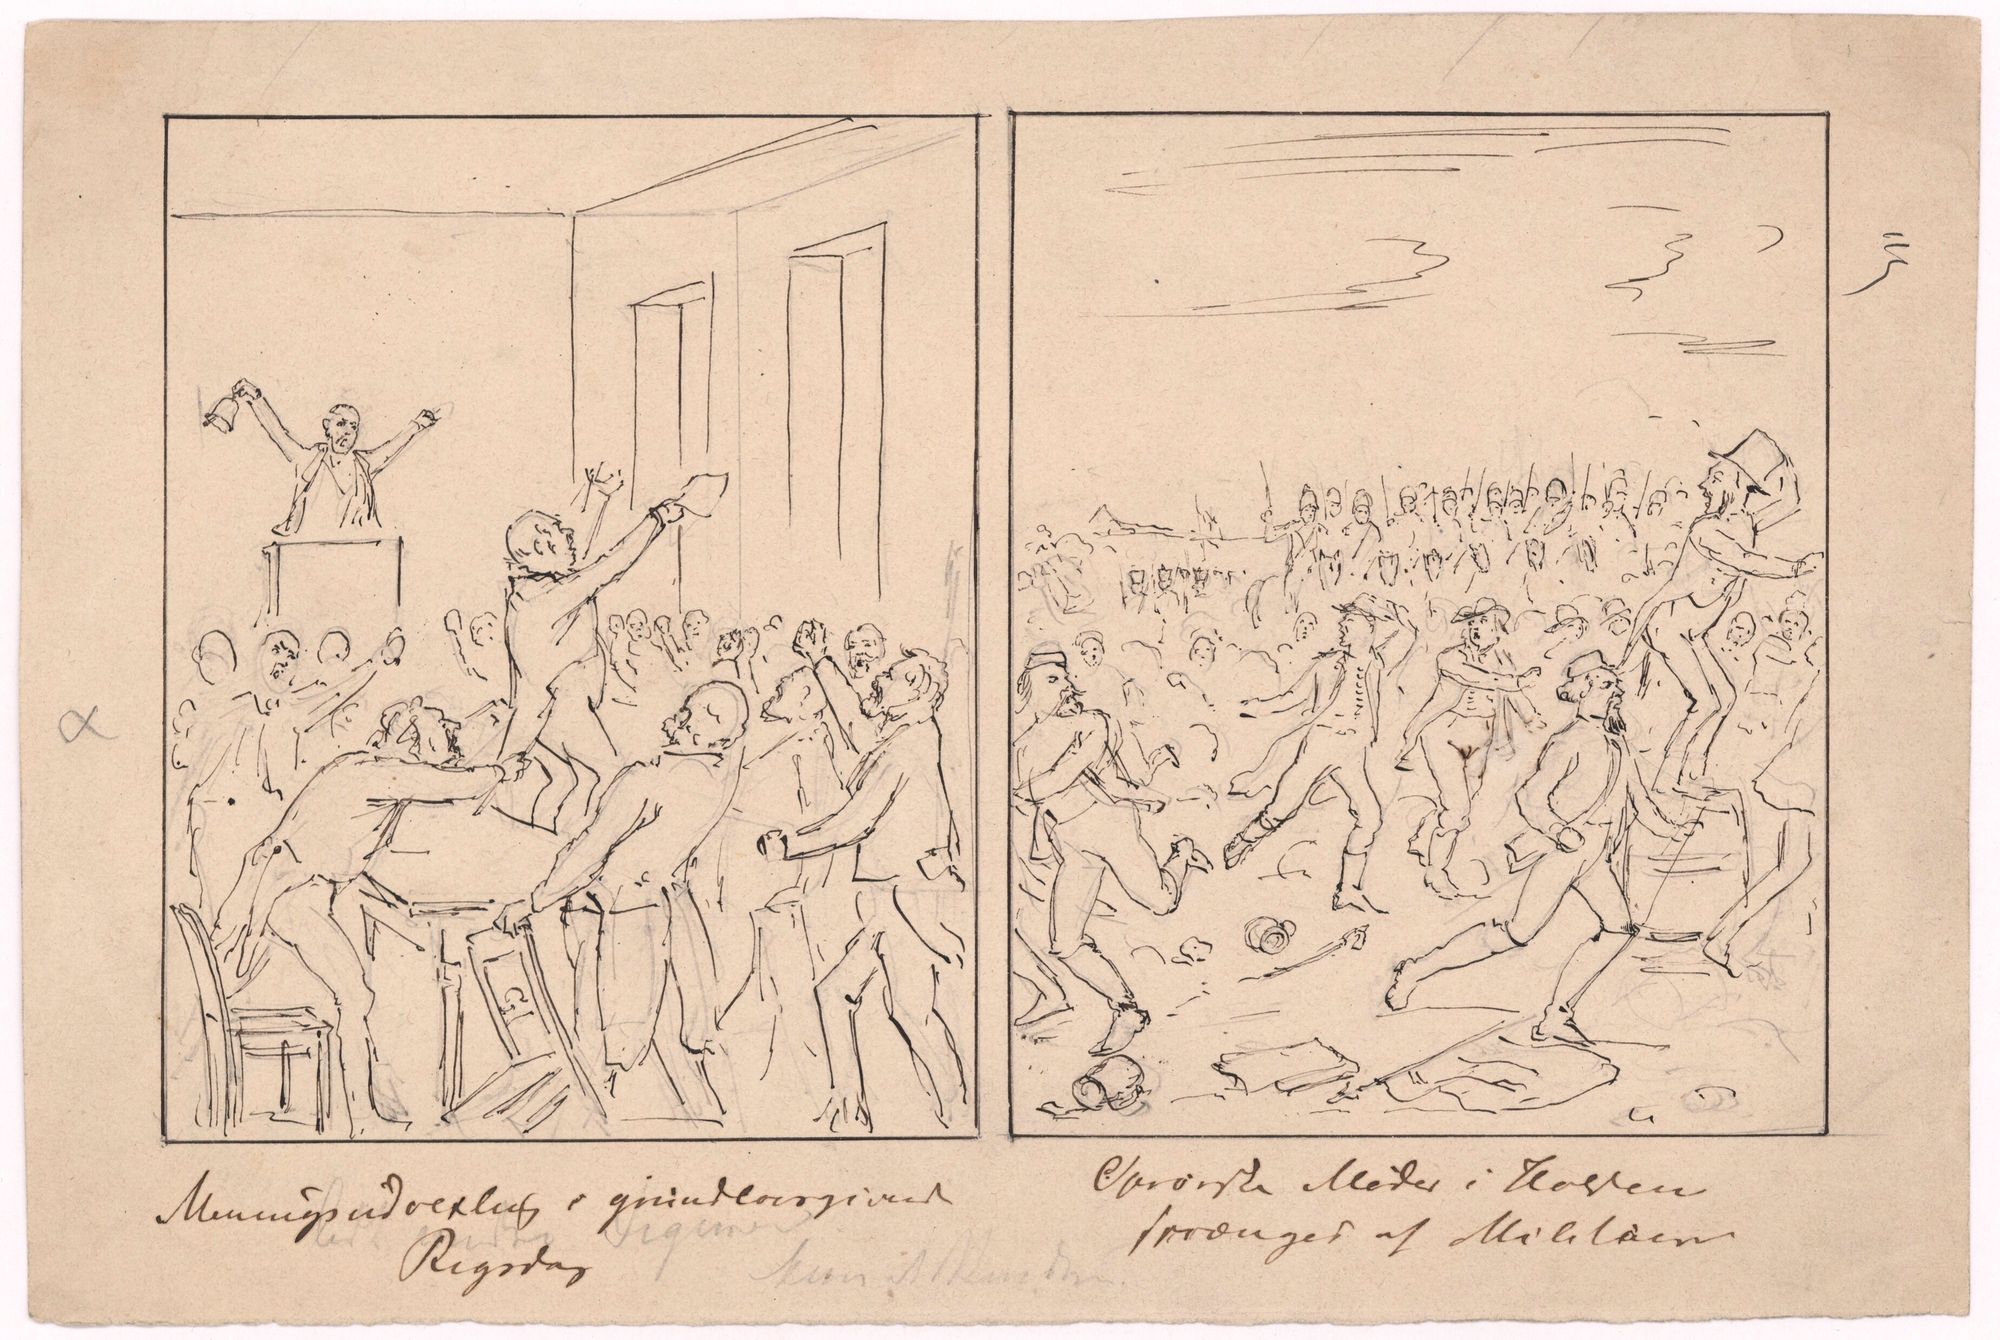 Meningsudvexling i grundlovgivende
Rigsdag
Oprørske Møder i Holsten
sprænges af Militær